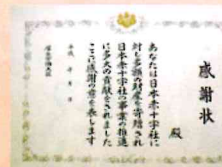 感謝状
殿
あなたは日本赤十字社に
対し多額の財産を寄贈され
日本赤十字社の事業の推進
に多大の貢献をされました
ここに感謝の意を表します
平成 年 月 日